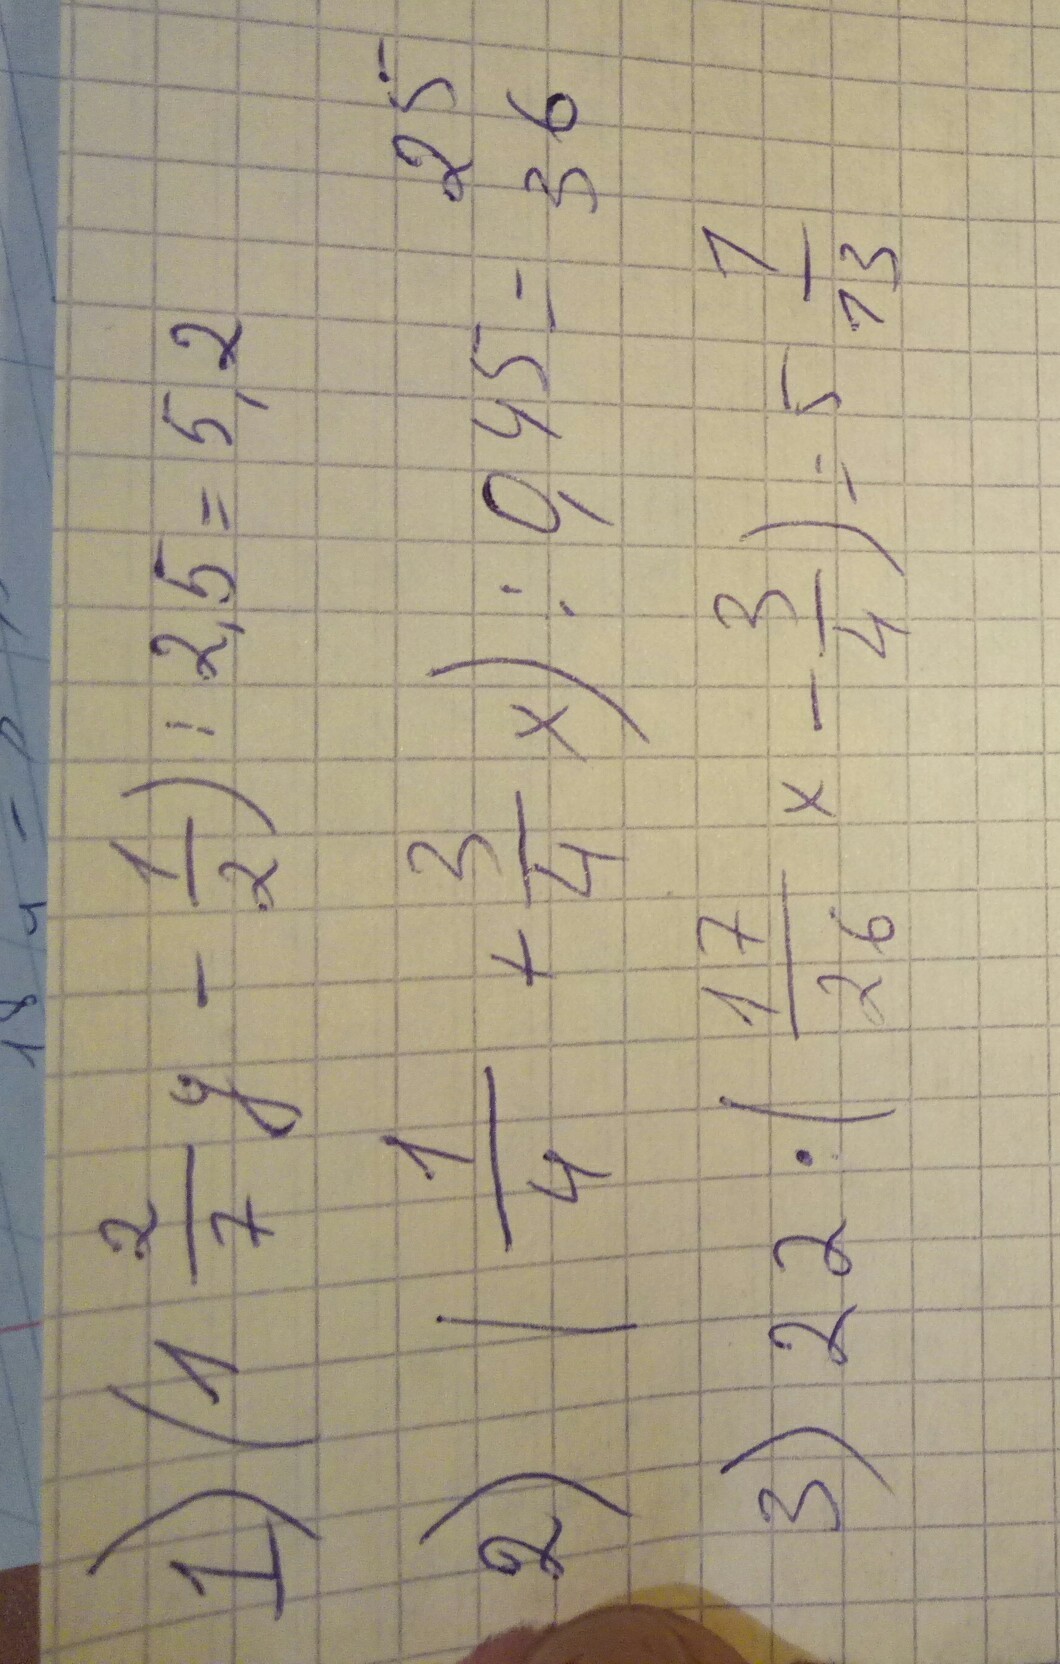 1) (1 2/7 y - 1/2) : 2,5 = 5,2
2) (1/4 + 3/4 x) : 0,45 = 25/36
3) 22 : (17/26 x - 3/4) = 5 1/13